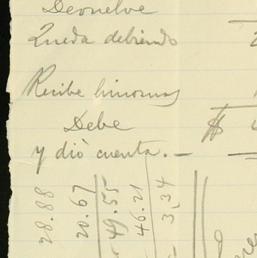 Devuelve
Queda debiendo
Recibe
Debe $
y dió cuenta. —
28.88
20.67
49.55
46.21
3,34